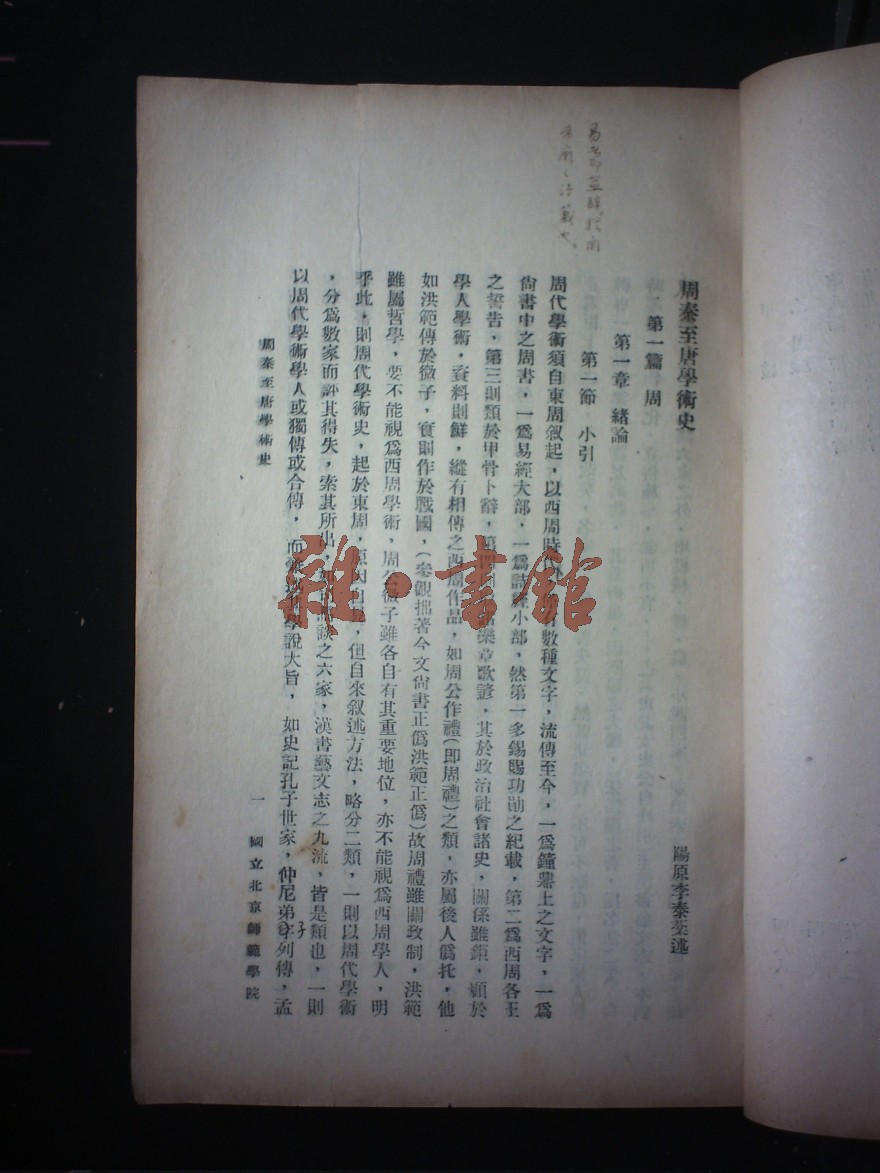 周秦至唐學術史
陽原李泰棻述
第一篇 周
第一章 緒論
第一節 小引
周代學術須自東周叙起，以西周時代 數種文字，流傳至今，一爲鐘鼎上之文字，一爲
尙書中之周書，一爲易經大部，一爲詩經小部，然第一多錫賜功勛之紀載，第二爲西周各王
之誓告，第三則類於甲骨卜辭，第四則 樂章歌諺，其於政治社會諸史，關係雖鉅，顧於
學人學術，資料則鮮，縱有相傳之西周作品，如周公作禮（即周禮）之類，亦屬後人僞托，他
如洪範傳於微子，實則作於戰國，（參觀拙著今文尙書正僞洪範正僞）故周禮雖關政制，洪範
雖屬哲學，要不能視爲西周學術，周公微子雖各自有其重要地位，亦不能視爲西周學人，明
乎此，則周代學術史，起於東周，原因 但自來叙述方法，略分二類，一則以周代學術
，分爲數家而評其得失，索其所出， 談之六家，漢書藝文志之九流，皆是類也，一則
以周代學術學人或獨傳或合傳， 學說大旨，如史記孔子世家，仲尼弟子列傳，孟
周秦至唐學術史
一
國立北京師範學院
子
雜·書館